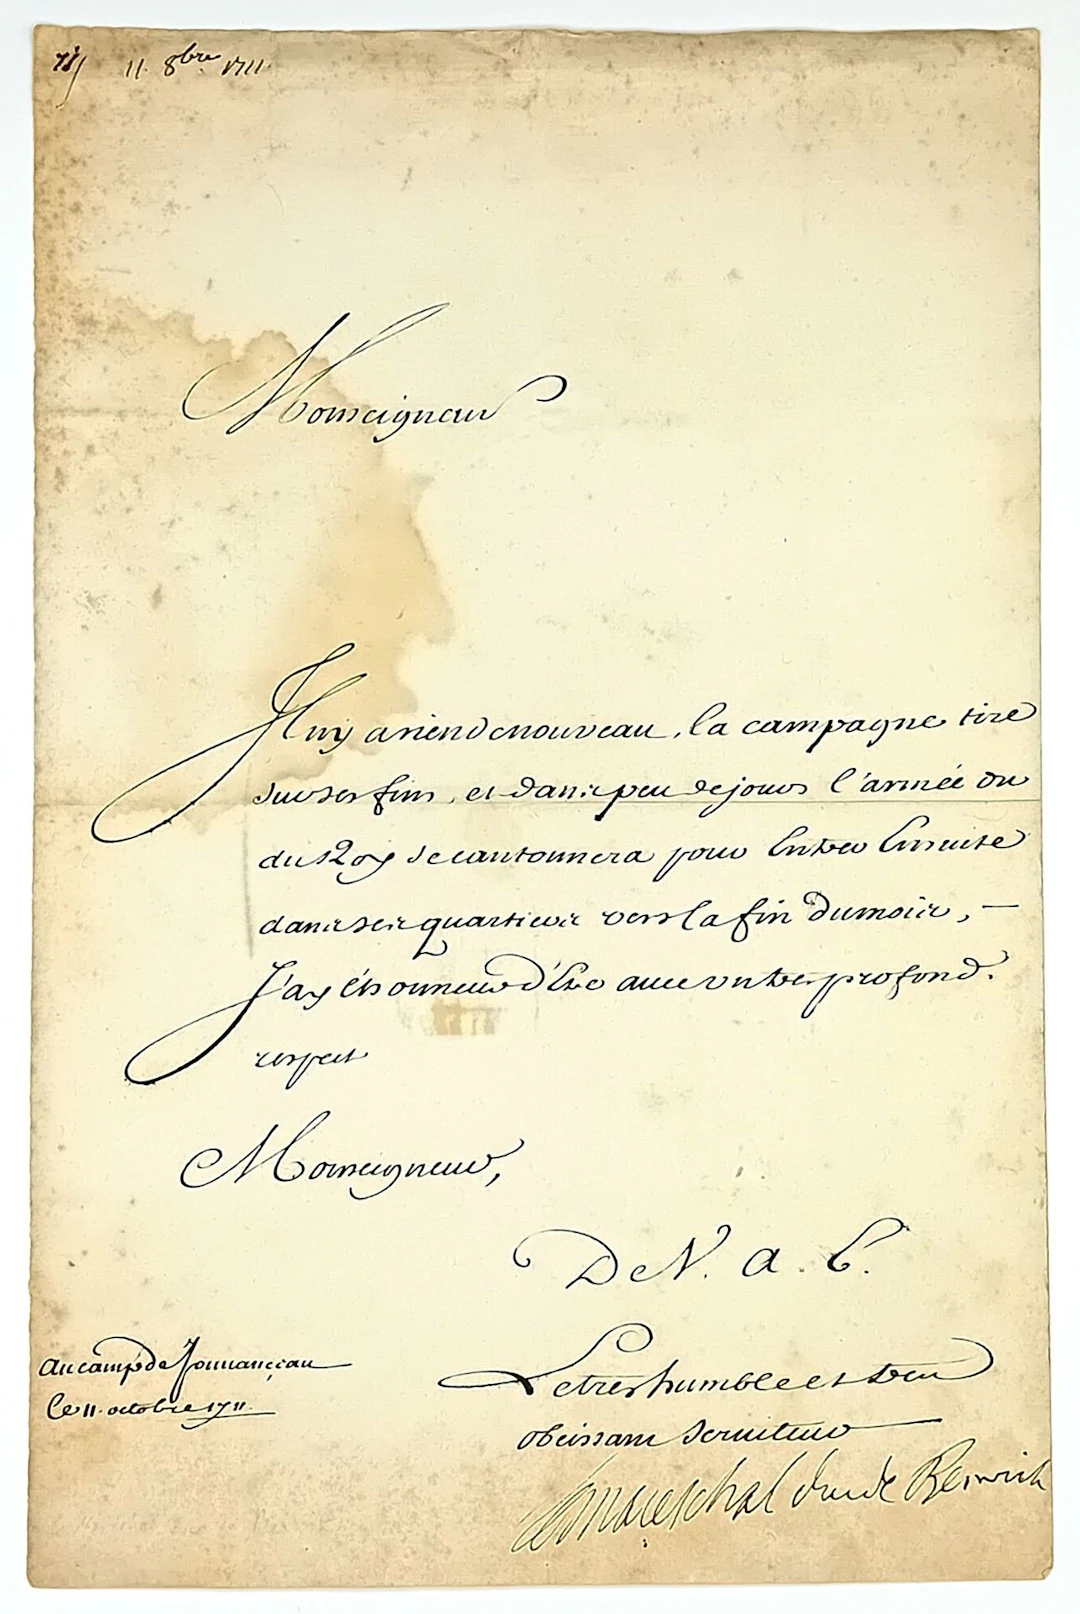 11. 8bre 1711.
Monseigneur
Il ny a rien de nouveau, la campagne tire
sur ses fins, et dans peu de jours l'armée du
du Roy se cantonnera pour Entrer Ensuite
dans ses quartiers vers la fin du mois, —
J'ay l'honneur d'Etre avec un tres profond
respect
Monseigneur,
De V. A. E.
Le tres humble et tres
obeissant serviteur
le mareschal duc de Berwick
au camp de
le 11. octobre 1711.